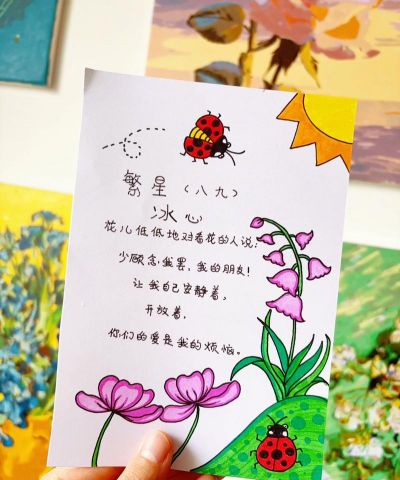 繁星（八九）
冰心
花儿低低地对看花的人说：
少顾念我罢，我的朋友！
让我自己安静着，
开放着，
你们的爱是我的烦恼。